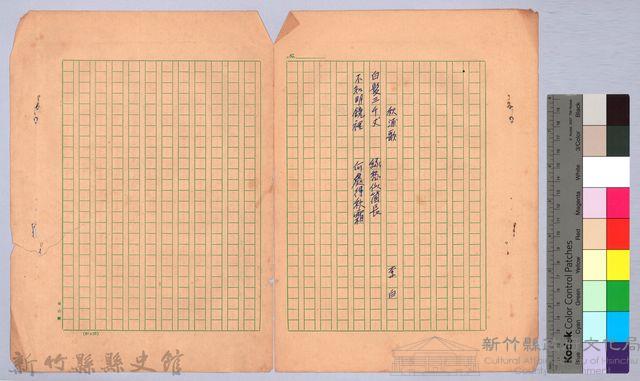 秋浦歌 李白
白髮三千丈 緣愁似箇長
不知明鏡裡 何處得秋霜
新竹縣縣史館
新竹縣政府文化局
Cultural Affairs Bureau of Hsinchu
County Government
Kodak Color Control Patches
Blue
Cyan
Green
Yellow
Red
Magenta
White
3/Color
Black